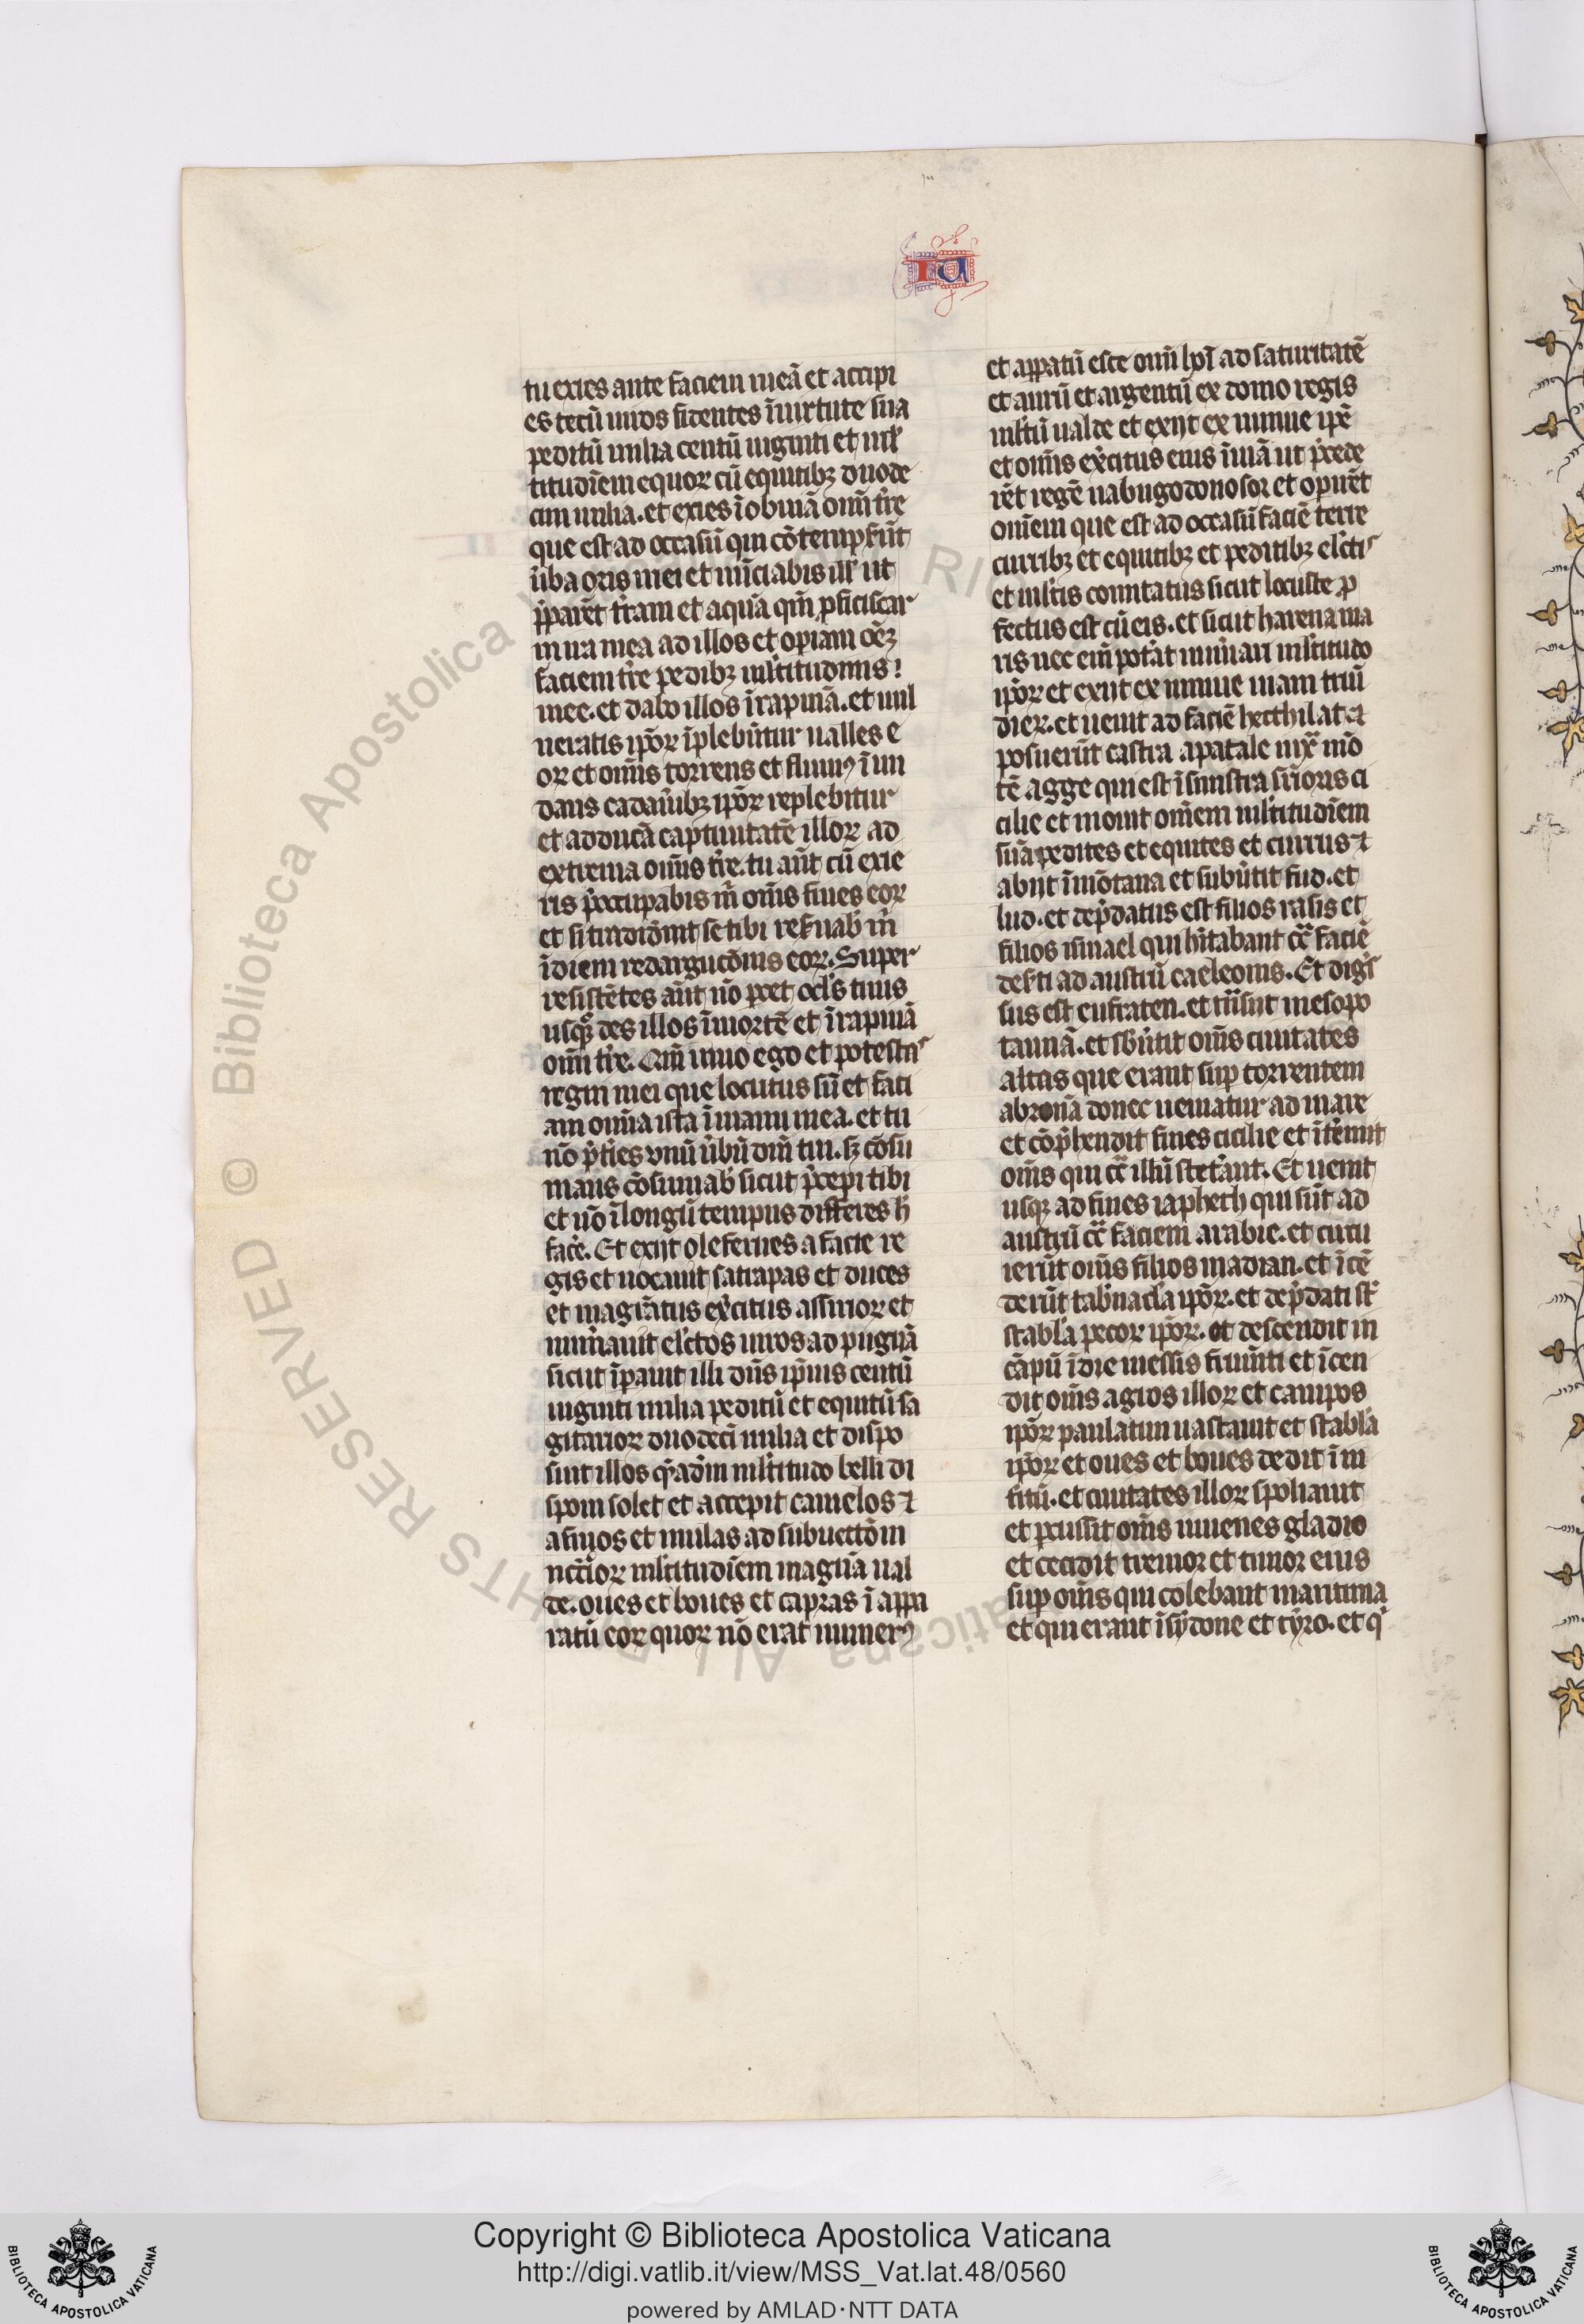 IU
tu exies ante faciem meā et accipi
es tecū uiros fidentes ī uirtute sua
peditū milia centū uiginti et ml̕
titudīem equoꝝ cū equitibꝫ duode
cim milia. et exies ī obuiā om̄i tr̄e
que est ad occasū qui cōtempserūt
ūba oris mei et nūciabis ill̕ ut
p̄parēt tr̄am et aquā qm̄ ꝓficiscar
in ira mea ad illos et opiam oēꝫ
faciem tr̄e pedibꝫ ml̕titudinis
mee. et dabo illos ī rapinā. et uul
neratis ipōꝝ īplebūtur ualles e
oꝝ et om̄is torrens et fluuiꝰ ī un
dans cadaūibꝫ ipōꝝ replebitur
et adducā captiuitatē illoꝝ ad
extrema om̄is tr̄e. tu aūt cū exie
ris p̄occupabis m̄ om̄is fines eoꝝ
et si tradidīnt se tibi reseruab̕ m̄
ī diem redargucōnis eoꝝ. Super
resistētes aūt nō ꝑcet ocl̕s tuus
usq̨ des illos ī mortē et ī rapinā
om̄i tr̄e. Qm̄ uiuo ego et potestas
regni mei que locutus sū et faci
am om̄ia ista ī manu mea. et tu
nō p̄t̕ies vnū ūbū dm̄ tui. sꝫ cōsu
mans cōsumab̕ sicut p̄cepi tibi
et nō ī longū tempus differes h̕
fac̕e. Et exijt olefernes a facie re
gis et uocauit satrapas et duces
et magr̄atus ex̕citus assirioꝝ et
num̕auit elc̕tos uiros ad pugnā
sicut īpauit illi dn̄s ip̄ius centū
uiginti milia peditū et equitū sa
gitarioꝝ duodecī milia et dispo
suit illos q̄adm̄ ml̕titudo belli di
sponi solet et accepit camelos ⁊
asinos et mulas ad subuectōm
nc̄c̄ioꝝ ml̕titudīem magnā ual
de. oues et boues et capras ī appa
ratū eoꝝ quoꝝ nō erat numerꝰ
et apꝑatū esce om̄i hōī ad saturitatē
et aurū et argentū ex domo regis
ml̕tū ualde et exijt ex niniue ip̄e
et om̄is ex̕citus eius ī uiā ut p̄cede
rēt regē nabugodonosor et opuēt
om̄em que est ad occasū faciē terre
curribꝫ et equitibꝫ et peditibꝫ elc̕tis
et ml̕tis comitatus sicut locuste ꝓ
fectus est cū eis. et sicut harena ma
ris nec em̄ potāt num̕ari ml̕titudo
ipōꝝ et exijt ex niniue uiam triū
dieꝝ. et uenit ad faciē hecthilat ⁊
posuerūt castra apatale iuxᵃ mō
tē agge qui est ī sinistra sūioris ci
cilie et mouit om̄em ml̕titudīem
suā pedites et equites et currus ⁊
abijt ī mōtana et subūtit fud. et
lud. et dep̄datus est filios rasis et
filios ismael qui hītabant cᵃ̄ faciē
deserti ad austrū caeleonis. Et digr̄s
sus est eufraten. et trāsijt mesopo
tamiā. et sb̕ūtit om̄s ciuitates
altas que erant sup torrentem
abronā donec ueniatur ad mare
et cōp̄hendit fines cicilie et īt̕emit
om̄s qui cᵃ̄ illū stet̕ant. Et uenit
usq̨ ad fines iapheth qui sūt ad
austrū cᵃ̄ faciem arabie. et circu
ierūt om̄s filios madian. et īcē
derūt tab̕nacl̕a ipōꝝ. et dep̄dati st̄
stabl̕a pecoꝝ ipōꝝ. et descendit in
cāpū ī die messis frum̄ti et īcen
dit om̄s agros illoꝝ et campos
ipōꝝ paulatim uastauit et stabl̕a
ipōꝝ et oues et boues dedit ī in
titū. et ciuitates illoꝝ spoliauit
et ꝑcussit om̄s iuuenes gladio
et cecidit tremor et timor eius
sup om̄s qui colebant maritima
et qui erant ī sydone et tyro. et qⁱ
© Biblioteca Apostolica Vaticana ALL RIGHTS RESERVED
Copyright © Biblioteca Apostolica Vaticana
http://digi.vatlib.it/view/MSS_Vat.lat.48/0560
powered by AMLAD·NTT DATA
BIBLIOTECA APOSTOLICA VATICANA
BIBLIOTECA APOSTOLICA VATICANA